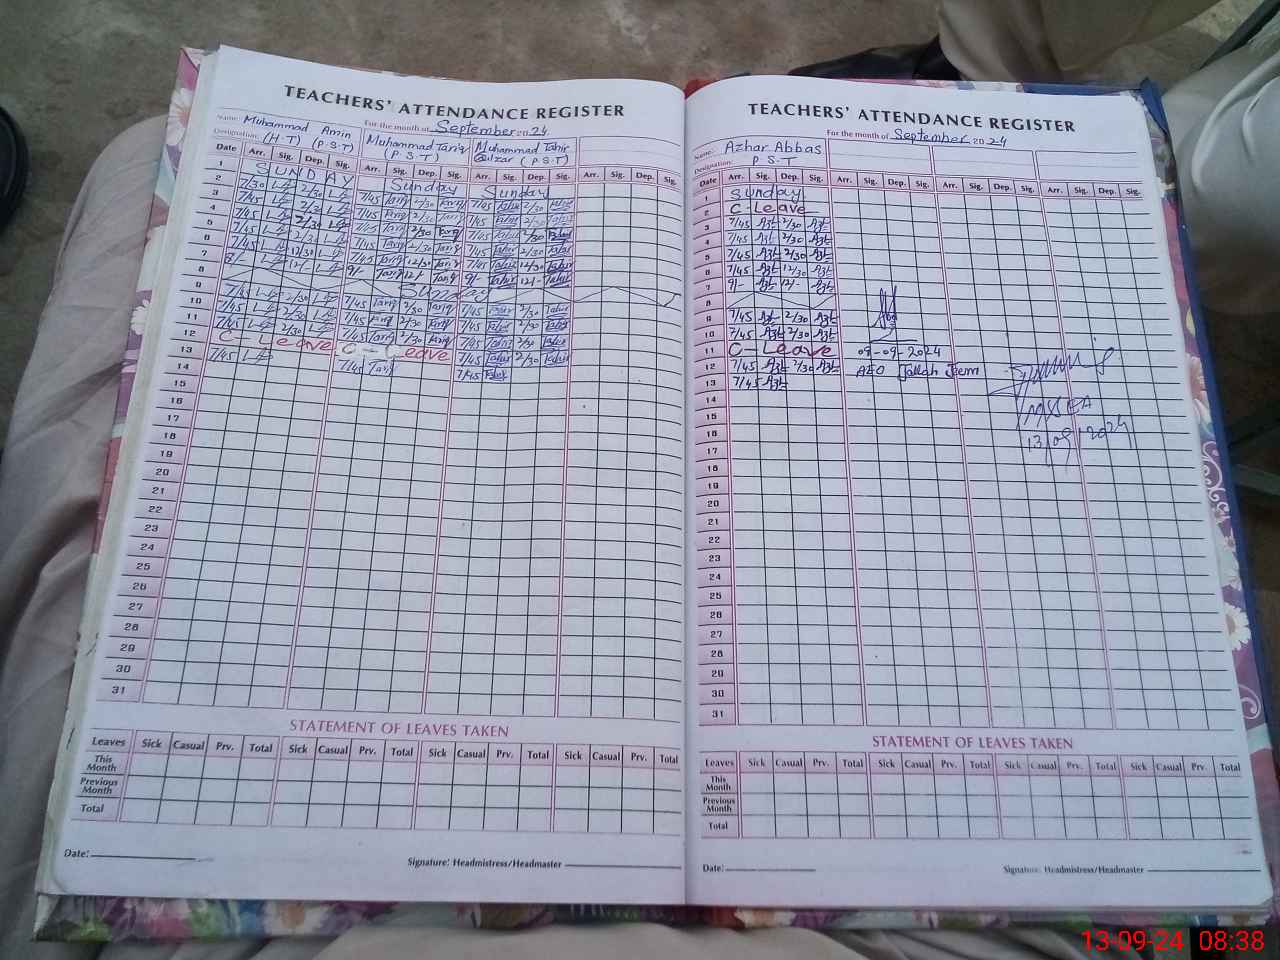 TEACHERS' ATTENDANCE REGISTER
For the month of September 2024
Name: Muhammad Amin Muhammad Tariq Muhammad Tahir
Designation: (H.T) (P.S.T) (P.S.T) Gulzar (P.S.T)
Date Arr. Sig. Dep. Sig. Arr. Sig. Dep. Sig. Arr. Sig. Dep. Sig. Arr. Sig. Dep. Sig.
1 SUNDAY Sunday Sunday
2 7/30 2/30 7/45 Tariq 2/30 Tariq 7/45 Tahir 2/30 Tahir
3 7/45 2/30 7/45 Tariq 2/30 Tariq 7/45 Tahir 2/30 Tahir
4 7/45 2/30 7/45 Tariq 2/30 Tariq 7/45 Tahir 2/30 Tahir
5 7/45 2/30 7/45 Tariq 2/30 Tariq 7/45 Tahir 2/30 Tahir
6 7/45 12/30 7/45 Tariq 12/30 Tariq 7/45 Tahir 12/30 Tahir
7 8/- 12/- 9/- Tariq 12/- Tariq 9/- Tahir 12/- Tahir
8 Sunday
9 7/45 2/30 7/45 Tariq 2/30 Tariq 7/45 Tahir 2/30 Tahir
10 7/45 2/30 7/45 Tariq 2/30 Tariq 7/45 Tahir 2/30 Tahir
11 7/45 2/30 7/45 Tariq 2/30 Tariq 7/45 Tahir 2/30 Tahir
12 C-Leave C-Leave 7/45 Tahir 2/30 Tahir
13 7/45 7/45 Tariq 7/45 Tahir
14
15
16
17
18
19
20
21
22
23
24
25
26
27
28
29
30
31
STATEMENT OF LEAVES TAKEN
Leaves Sick Casual Prv. Total Sick Casual Prv. Total Sick Casual Prv. Total Sick Casual Prv. Total
This Month
Previous Month
Total
Date:
Signature: Headmistress/Headmaster
TEACHERS' ATTENDANCE REGISTER
For the month of September 2024
Name: Azhar Abbas
Designation: P.S.T
Date Arr. Sig. Dep. Sig. Arr. Sig. Dep. Sig. Arr. Sig. Dep. Sig. Arr. Sig. Dep. Sig.
1 Sunday
2 C-Leave
3 7/45 2/30
4 7/45 2/30
5 7/45 2/30
6 7/45 12/30
7 9/- 12/-
8
9 7/45 2/30
10 7/45 2/30
11 C-Leave 09-09-2024
12 7/45 2/30 AEO Jallah Jeem
13 7/45
14
15
16 13/09/2024
17
18
19
20
21
22
23
24
25
26
27
28
29
30
31
STATEMENT OF LEAVES TAKEN
Leaves Sick Casual Prv. Total Sick Casual Prv. Total Sick Casual Prv. Total Sick Casual Prv. Total
This Month
Previous Month
Total
Date:
Signature: Headmistress/Headmaster
13-09-24 08:38